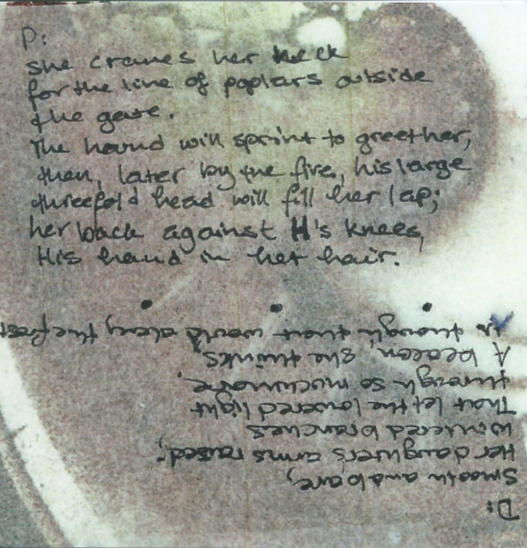 P:
She cranes her neck
for the line of poplars outside
the gate.
The hound will sprint to greet her,
then, later by the fire, his large
threefold head will fill her lap;
her back against H's knees,
His hand in her hair.
D:
Smooth and bare,
Her daughter's arms raised;
Wintered branches
That let the lowered light
through so much more.
A beacon, she thinks,
though that would deny the frost